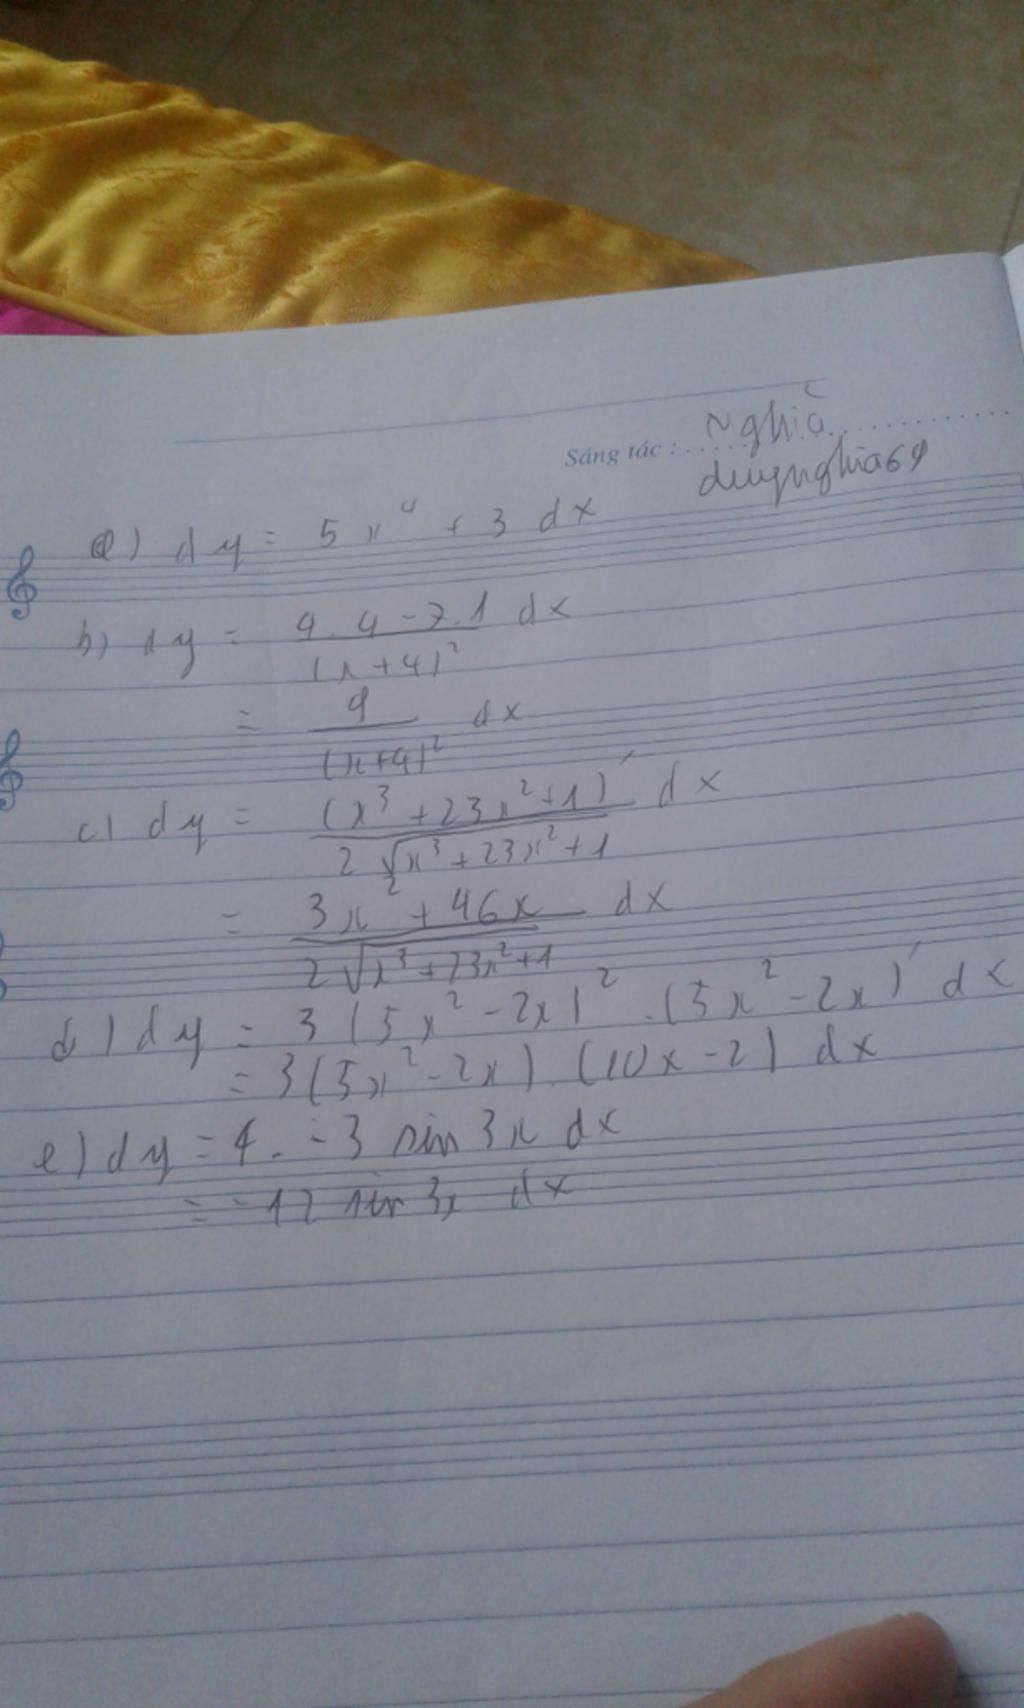 Sáng tác : Nghĩa
duynghia69
a) dy = 5x⁴ + 3 dx
b) dy = \frac{4.4-7.1}{(x+4)²} dx
= \frac{9}{(x+4)²} dx
c) dy = \frac{(x³+23x²+1)'}{2\sqrt{x³+23x²+1}} dx
= \frac{3x²+46x}{2\sqrt{x³+23x²+1}} dx
d) dy = 3(5x²-2x)².(5x²-2x)' dx
= 3(5x²-2x).(10x-2) dx
e) dy = 4.-3 sin 3x dx
= -12 sin 3x dx